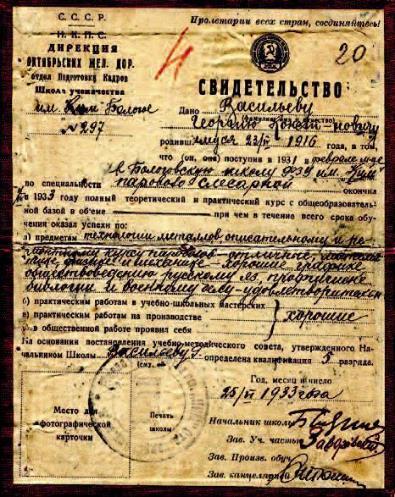 С. С. С. Р. Пролетарии всех стран, соединяйтесь!
Н. К. П. С.
ДИРЕКЦИЯ
ОКТЯБРЬСКИХ ЖЕЛ. ДОР.
отдел Подготовку Кадров
Школа ученичества
им. Ким Бологое
№ 297
4
20
СВИДЕТЕЛЬСТВО
Дано Васильеву
Георгию
родившемуся 23/II 1916 года, в том,
что (он, она) поступив в 1931 феврале м-це
в Бологовскую школу ФЗУ им. "Ким"
по специальности паровозо слесарной окончил
в 1933 году полный теоретический и практический курс с общеобразователь-
ной базой в об'еме при чем в течение всего срока обу-
чения оказал успехи по:
а) предметам технологии металлов, описательному и ре-
монтному курсу паровозов - отличные,
физике и хорошие, графике
обществоведению русскому яз.
биологии и военному делу - удовлетворительн
с) практическим работам в учебно-школьных мастерских
практическим работам на производстве хорошие
в общественной работе проявил себя
На основании постановления учебно-методического совета, утвержденного На-
чальником Школы Васильеву Г. определена квалификация 5 разряда.
Год, месяц и число
25/II 1933 года
Место для
фотографической
карточки
Печать
школы
Начальник школы
Зав. Уч. частью
Зав. Произв. обуч.
Зав. канцелярией